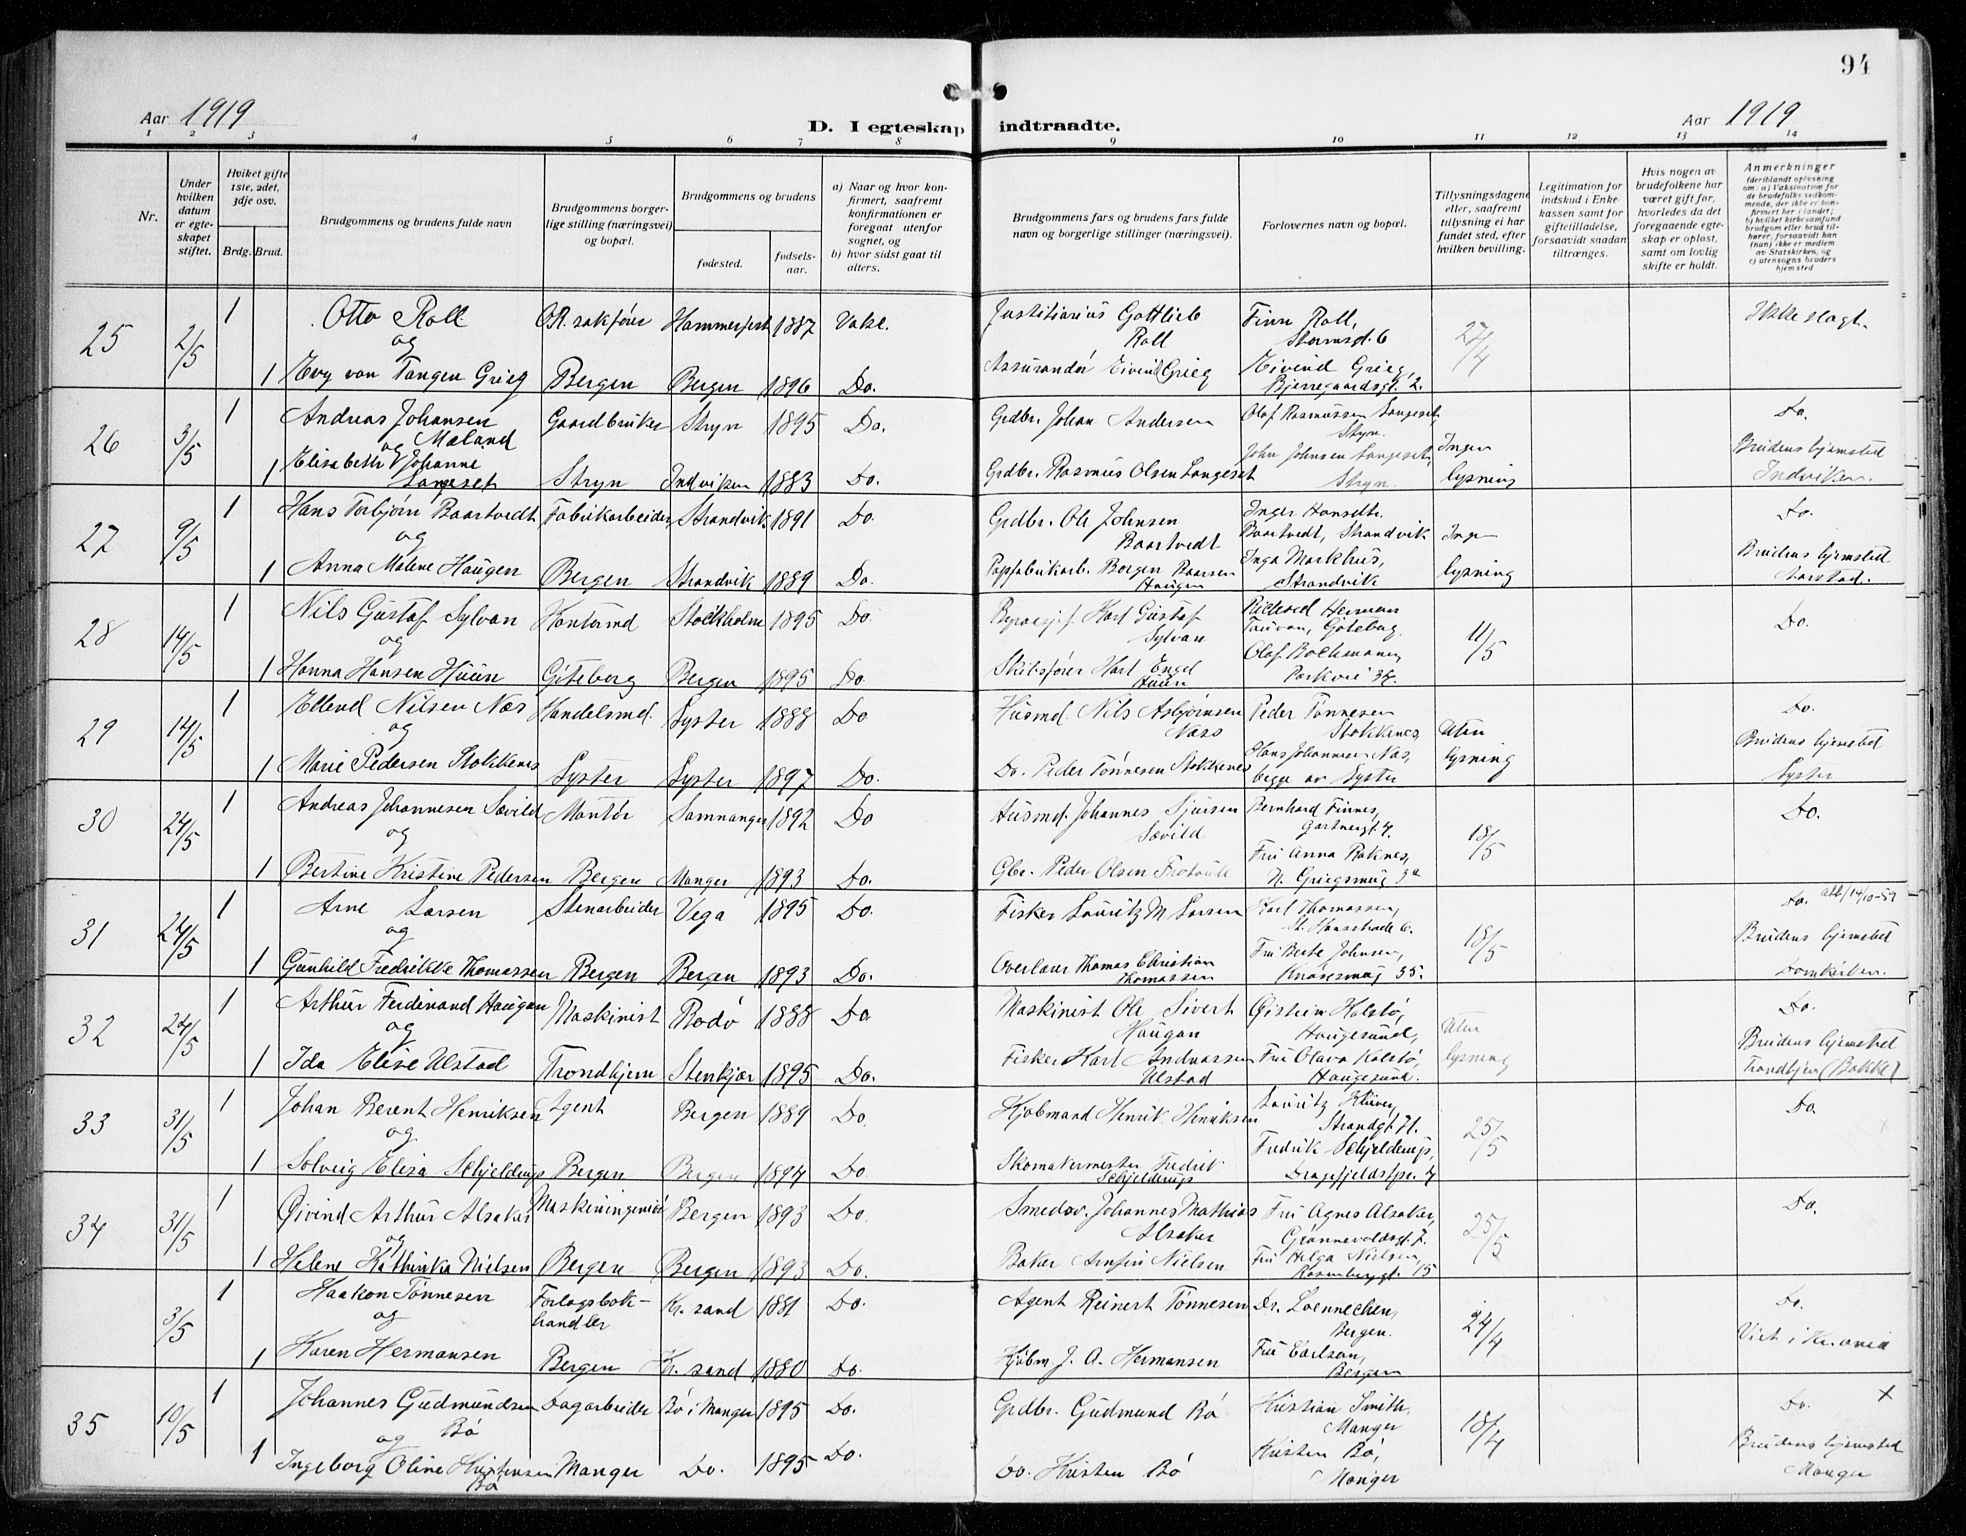 94
Aar 1919
D. I egteskap indtraadte.
Aar 1919
1 2 3 4 5 6 7 8 9 10 11 12 13 14
Nr.
Under hvilken datum er egteskapet stiftet.
Hviket gifte 1ste, 2det, 3dje osv.
Brdg. Brud.
Brudgommens og brudens fulde navn
Brudgommens borgerlige stilling (næringsvei) og bopæl.
Brudgommens og brudens
fødested.
fødselsaar.
a) Naar og hvor konfirmert, saafremt konfirmationen er foregaat utenfor sognet, og
b) hvor sidst gaat til alters.
Brudgommens fars og brudens fars fulde navn og borgerlige stillinger (næringsvei).
Forlovernes navn og bopæl.
Tillysningsdagene eller, saafremt tillysning ei har fundet sted, efter hvilken bevilling.
Legitimation for indskud i Enkekassen samt for giftetilladelse, forsaavidt saadan tiltrænges.
Hvis nogen av brudefolkene har været gift før, hvorledes da det foregaaende egteskap er opløst, samt om lovlig skifte er holdt.
Anmerkninger (deriblandt oplysning om: a) Vaksination for de brudefolks vedkommende, der ikke er konfirmert her i landet; b) hvilket kirkesamfund brudgom eller brud tilhører, forsaavidt han (hun) ikke er medlem av Statskirken, og c) utensogns bruders hjemsted
25 2/5 1 Otto Roll OR. sakfører Hammerfest 1887 Vaks. Justitiarius Gottlieb Roll Finn Roll, Stormsgt. 6 27/4 Ikke slegt.
og
1 Evy von Tangen Grieg Bergen Bergen 1896 Do. Assurandør Eivind Grieg Eivind Grieg, Bjerregaardsgt. 2.
26 3/5 1 Andreas Johansen Mæland Gaardbruker Stryn 1895 Do. Grdbr. Johan Andersen Olaf Rasmussen Langeset, Stryn. Ingen lysning Do.
og
1 Elisabeth Johanne Langeset Stryn Indviken 1883 Do. Grdbr. Rasmus Olsen Langeset John Johnsen Langeset, Stryn. Brudens hjemsted Indviken.
27 9/5 1 Hans Torbjørn Baartvedt Fabrikarbeider Strandvik 1891 Do. Grdbr. Ole Johnsen Baartvedt Inger Hansdtr. Baartvedt, Strandvik Ingen lysning Do.
og
1 Anna Malene Haugen Bergen Strandvik 1889 Do. Papfabrikarb. Børgen Baarsen Haugen Inga Markhus, Strandvik Brudens hjemsted Aarstad.
28 14/5 1 Nils Gustaf Sylvan Kontormd Stockholm 1895 Do. Karl Gustaf Sylvan Richard Herman Göteborg. 11/5 Do.
og
1 Hanna Hansen Huun Göteborg Bergen 1895 Do. Skibsfører Karl Engel Huun Olaf Bochmann, Parkvei 34.
29 14/5 1 Ellend Nilsen Næs Handelsmd. Lyster 1888 Do Husmd. Nils Asbjørnsen Næss Peder Tønnesen Stokknes, Uten lysning Do.
og
1 Marie Pedersen Stokkenes Lyster Lyster 1897 Do. Do. Peder Tønnesen Stokkenes Hans Johannesen Næs, begge av Lyster Brudens hjemsted Lyster
30 24/5 1 Andreas Johannesen Sævild Montør Samnanger 1892 Do Husmd. Johannes Sjursen Sævild Bernhard Finnes, Gartnergt 7. 18/5 Do.
og
1 Bertine Kristine Pedersen Bergen Manger 1893 Do. Gbr. Peder Olsen Fru Anna Raknes, N. Griegsmug 3a
31 24/5 1 Arne Larsen Stenarbeider Vega 1895 Do. Fisker Lauritz M Larsen Karl Thomassen, St. Hansstræde 6. 18/5 Do. att/14/10-59
og
1 Gunhild Fredrikke Thomassen Bergen Bergen 1893 Do. Overlærer Thomas Christian Thomassen Fru Berte Johnsen, Knøsesmug 35. Brudens hjemsted Domkirken.
32 24/5 1 Arthur Ferdinand Haugan Maskinist Rødø 1888 Do Maskinist Ole Sivert Haugan Øistein Kalstø, Haugesund, Uten lysning Do.
og
1 Ida Elise Ulstad Trondhjem Stenkjær 1895 Do. Fisker Karl Andreassen Ulstad Fru Olava Kalstø, Haugesund. Brudens hjemsted Trondhjem (Bakke)
33 31/5 1 Johan Berent Henriksen Agent Bergen 1889 Do. Kjøbmand Henrik Henriksen Lauritz Klüver, Strandgt 71. 25/5 Do. x
og
1 Solveig Elisa Schjelderup Bergen Bergen 1894 Do. Skomakermester Fredrik Schjelderup Fredrik Schjelderup, Dragefjeldstpr. 4
34 31/5 1 Øivind Arthur Alsaker Maskiningeniør Bergen 1893 Do. Smedsv. Johannes Mathias Alsaker Fru Agnes Alsaker, Grønnevoldsgt. 7. 25/5 Do.
og
1 Helene Kathinka Nielsen Bergen Bergen 1893 Do. Baker Arnfin Nielsen Fru Helga Nielsen, Rosenbergt. 15
3/5 1 Haakon Tønnesen Forlagsbokhandler Kr. sand 1881 Do. Agent Reinert Tønnesen Dr. Loennechen, Bergen. 24/4 Do.
og
1 Karen Hermansen Bergen Kr. sand 1880 Do. Kjøbm. J. A. Hermansen Fru Carlson, Bergen Viet i Kr.ania
35 10/5 1 Johannes Gudmundsen Bø Dagarbeider Bø i Manger 1895 Do. Grdbr. Gudmund Bø Kristian Smith, Manger 18/4 Do. x
og
1 Ingeborg Oline Kristensen Bø Manger Do. 1895 Do. Do. Kristen Bø Kristen Bø, Manger Brudens hjemsted Manger